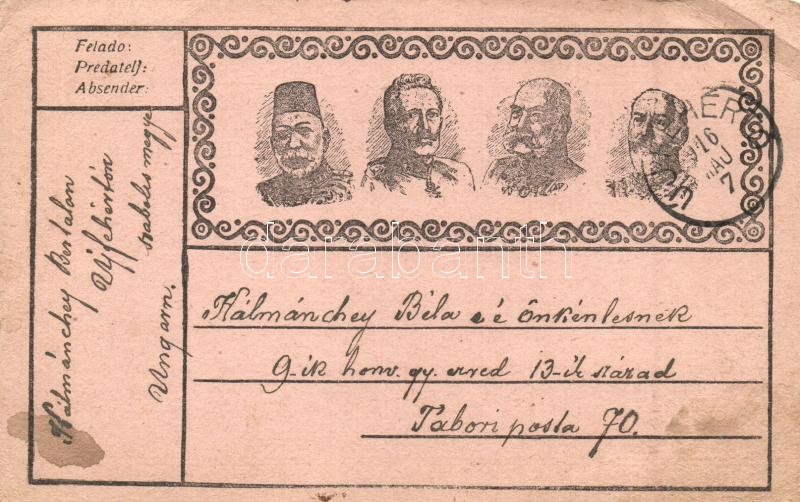 Felado:
Predatelj:
Absender:
Kálmánchey Bertalan
Ujfehértón
Szabolcs megye
Ungarn.
916 MÁJ 7
darabanth
Kálmánchey Béla eé önkéntesnek
9-ik honv. gy. ezred 13-ik század
Tábori posta 70.